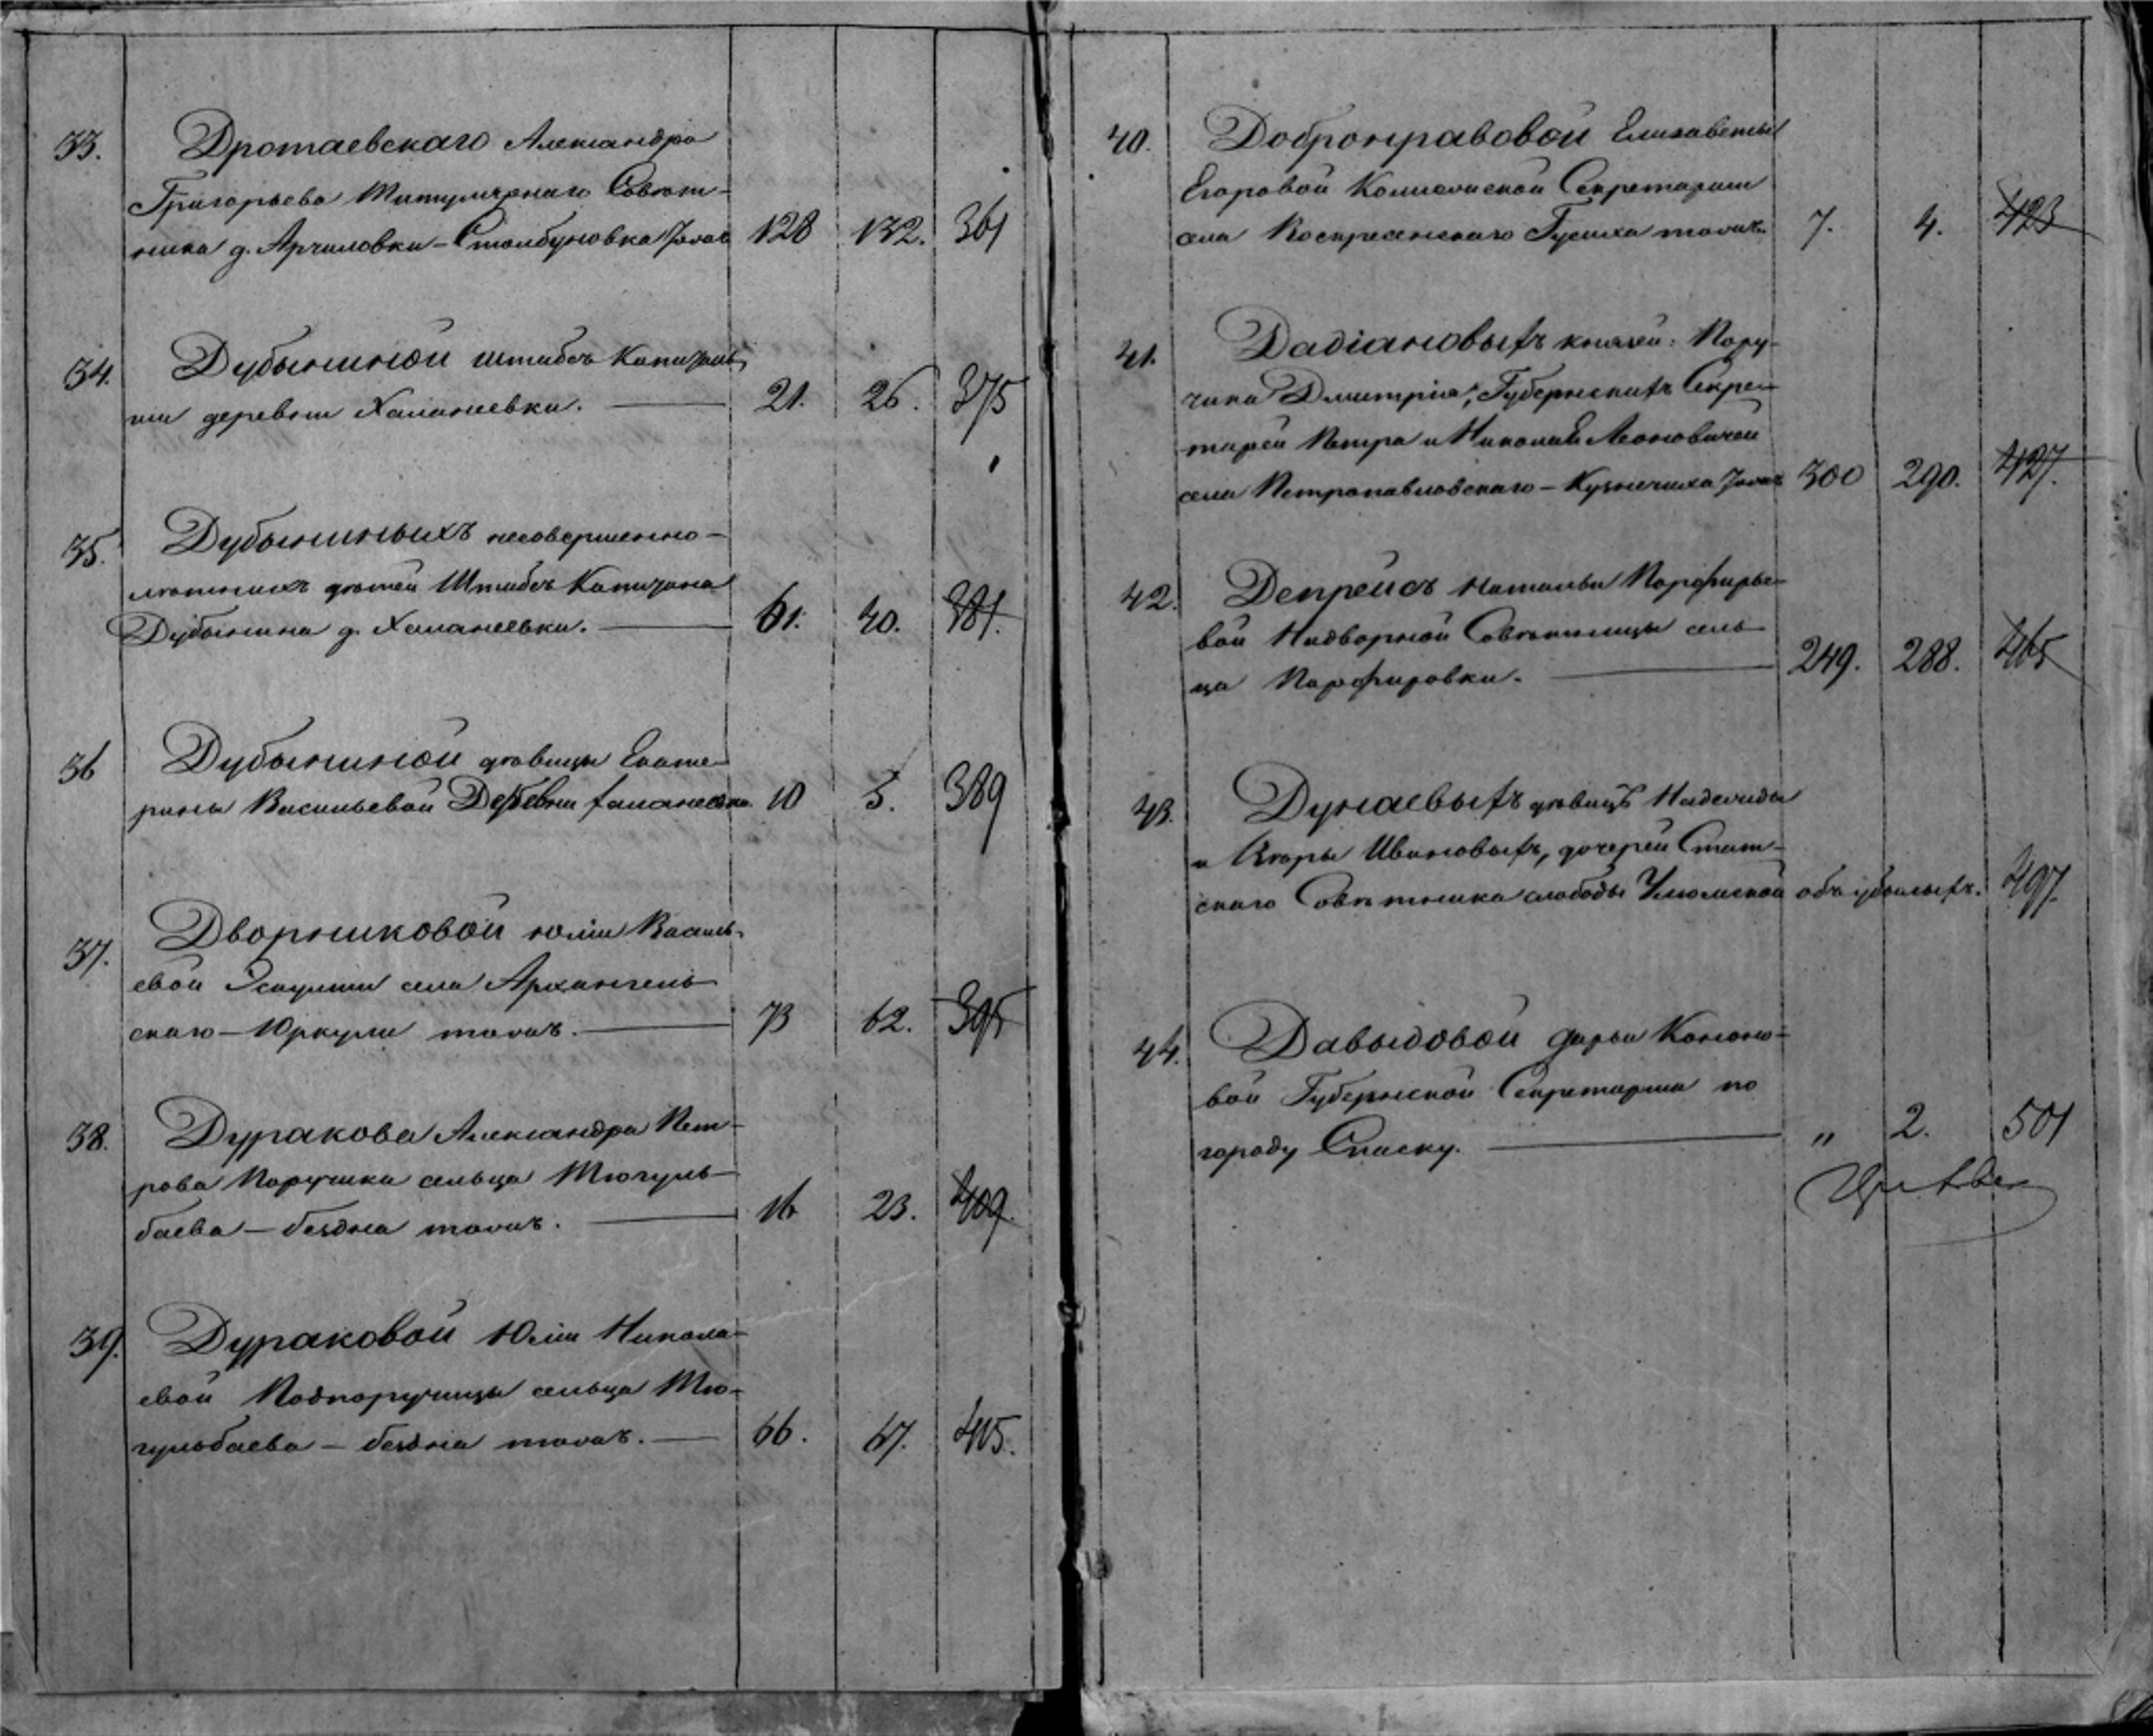 33. Дротаевскаго Александра
Григорьева Титулярнаго Совѣт-
ника д. Арчиловки - Столбуновка тожъ 128 132. 361
34. Дубыниной штабсъ Капитан-
ши деревни Хмлонеевки. 21. 26. 375
35. Дубыниныхъ несовершенно-
лѣтнихъ дѣтей Штабсъ Капитана
Дубынина д. 61. 40. 381.
36 Дубыниной дѣвицы Екате-
рины Васильевой Деревни 10 5. 389
37. Дворниковой Юліи Василь-
евой Эсаулши села Архангель-
скаго - Юркули тожъ. 73 62. 395
38. Дуракова Александра Пет-
рова Поручика сельца Тюгуль-
баева - бездна тожъ. 16 23. 409.
39. Дураковой Юліи Никола-
евой Подпоручицы сельца Тю-
гульбаева - бездна тожъ. 66. 67. 415.
40. Добронравовой Елизаветы
Егоровой Коллежской Секретарши
села Воскресенскаго Гусиха тожъ. 7. 4. 423
41. Дадіановыхъ князей: Пору-
чика Дмитрія, Губернскихъ Секре-
тарей Петра и Николая Леоновичей
села Петропавловскаго - Кузнечиха тожъ 300 290. 427.
42. Депрейсъ Натальи Порфирье-
вой Надворной Совѣтницы сель-
ца Порфировки. 249. 288. 465
43. Дунаевыхъ дѣвицъ Надежды
и Вѣры Ивановыхъ, дочерей Стат-
скаго Совѣтника слободы объ убылыхъ. 497.
44. Давыдовой Дарьи Кононо-
вой Губернской Секретарши по
городу Спаску. " 2. 501